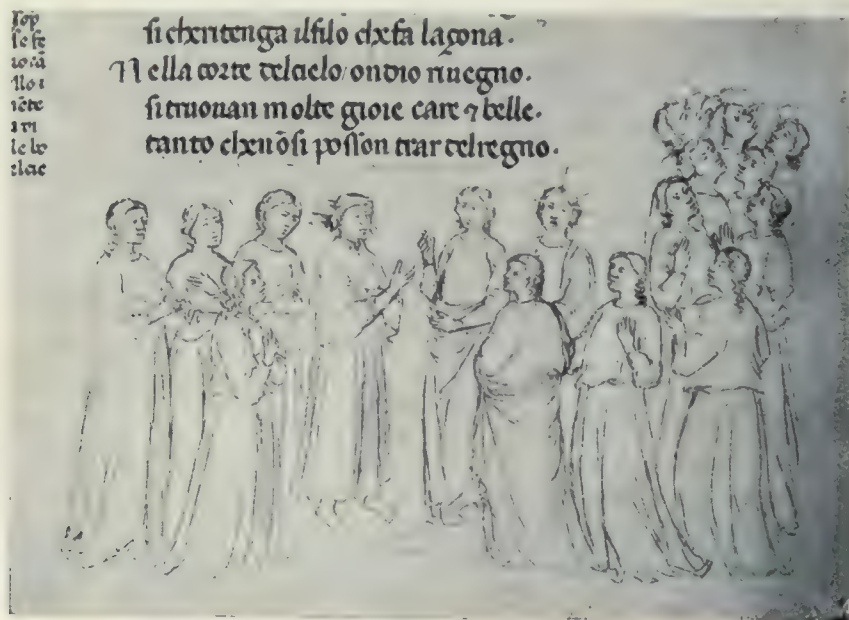 si che ritenga il filo che fa la çona.
Nella corte del cielo ondio riuegno.
si truouan molte gioie care ⁊ belle.
tanto che nō si posson trar del regno.